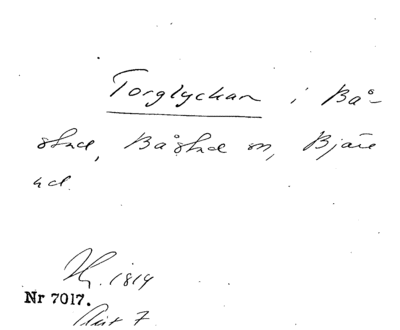 Torglyckan i Bå-
stad, Båstad sn, Bjäre
hd.
Hg. 1819
Nr 7017.
Akt 7